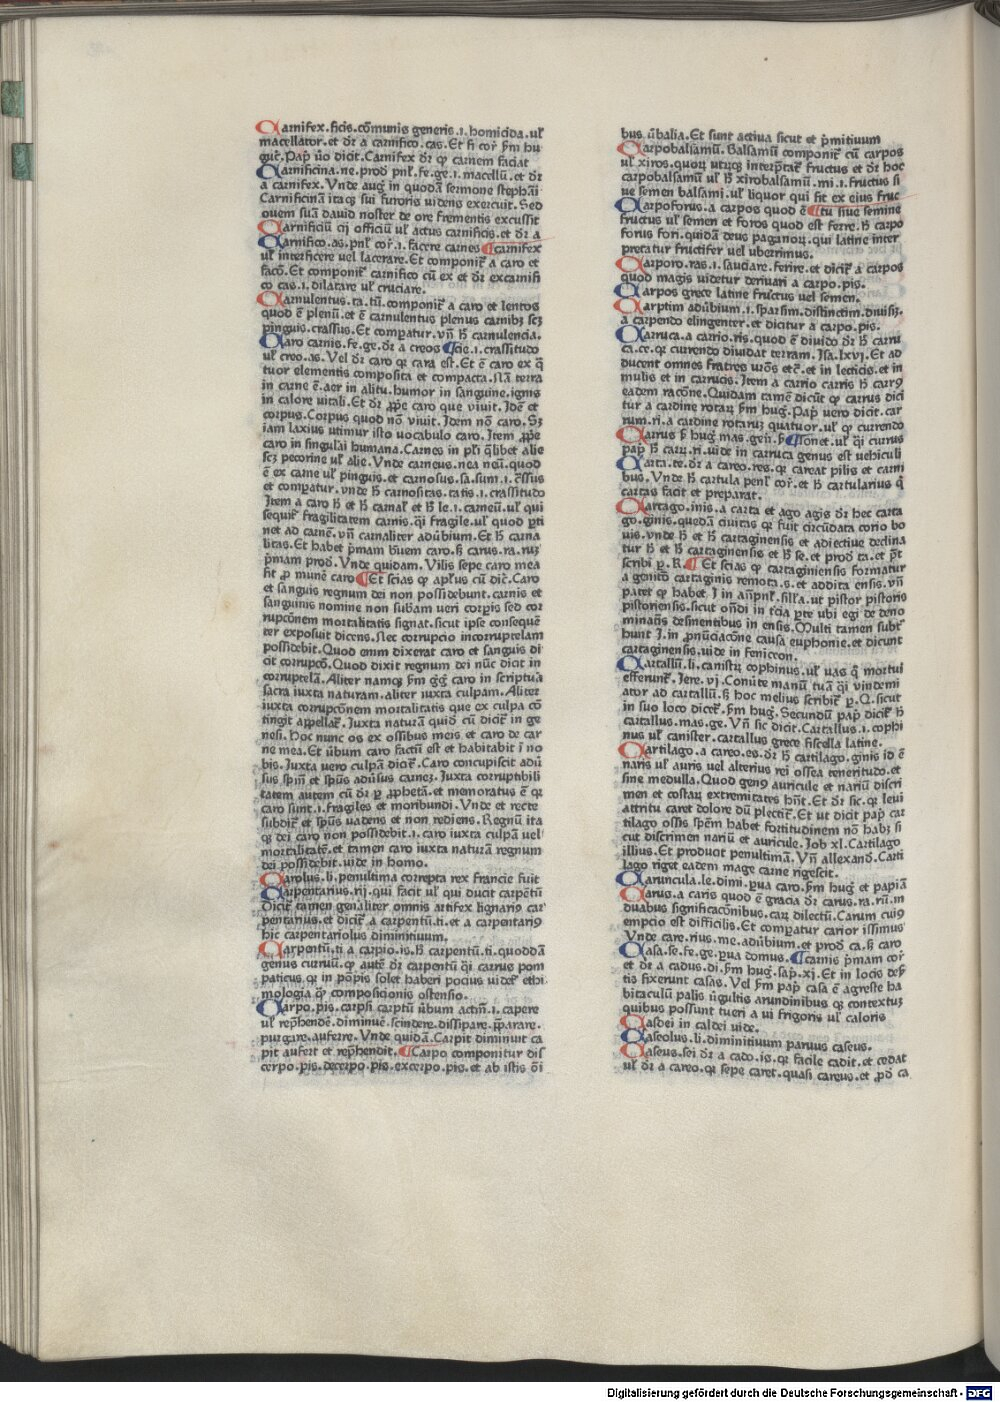 Carnifex.ficis.cōmunis generis.i.homicida.ul'
macellator.et dr̄ a carnifico.cas.Et fi cor̄ ẜm hu
guc̄.Pap̄ ūo dicit.Carnifex dr̄ ꝙ carnem faciat
Carnificina.ne.prod̄ pnl'.fe.ge.i.macellū.et dr̄
a carnifex.Vnde auḡ in quodā sermone stephāi
Carnificinā itaqȝ sui furoris uidens exercuit.Sed
ouem suā dauid noster de ore frementis excussit
Carnificiū cij officiū ul' actus carnificis.et dr̄ a
Carnifico.as.pnl' cor̄.i.facere carnes ¶carnifex
ul' interficere uel lacerare.Et componit̄ a caro et
facō.Et componit̄ carnifico cū ex et dr̄ excarnifi
co cas.i.dilatare ul' cruciare.
Carnulentus.ta.tū.componit̄ a caro et lentos
quod ē plenū.et ē carnulentus plenus carnibȝ scȝ
pinguis.crassus.Et compatur.vn̄ h̄ carnulencia.
Caro carnis.fe.ge.dr̄ a creos ¶cie.i.crassitudo
ul' creo.as.Vel dr̄ caro qꝛ cara est.Et ē caro ex q̄
tuor elementis composita et compacta.Nā terra
in carne ē.aer in alitu.humor in sanguine.ignis
in calore uitali.Et dr̄ ꝓpe caro que viuit.Idē et
corpus.Corpus quod nō viuit.Idem nō caro.Sȝ
iam laxius utimur isto uocabulo caro.Item ꝓpe
caro in singulai humana.Carnes in pl'i q̄libet alie
scȝ pecorine ul' alie.Vnde carneus.nea neū.quod
ē ex carne ul' pinguis.et carnosus.sa.sum.i.c̄ssus
et compatur.vnde h̄ carnositas.tatis.i.crassitudo
Item a caro h̄ et h̄ carnal' et h̄ le.i.carneū.ul' qui
sequit̄ fragilitatem carnis.q̄i fragile.ul' quod ꝑti
net ad carnē.vn̄ carnaliter adūbium.Et h̄ carna
litas.Et habet p̄mam b̄uem caro.sȝ carus.ra.ruȝ
p̄mam prod̄.Vnde quidam.Vilis sepe caro mea
fit ꝓ munē caro ¶Et scias ꝙ apl'us cū dic̄.Caro
et sanguis regnum dei non possidebunt.carnis et
sanguinis nomine non subam ueri corpis sed cor
rupcōnem mortalitatis signat.sicut ipse consequē
ter exposuit dicens.Nec corrupcio incorruptelam
possidebit.Quod enim dixerat caro et sanguis di
cit corrupcō.Quod dixit regnum dei nūc dicit in
corruptelā.Aliter namqȝ ẜm gḡ caro in scriptura
sacra iuxta naturam.aliter iuxta culpam.Aliter
iuxta corrupcōnem mortalitatis que ex culpa cō
tingit appellat̄.Iuxta naturā quid cū dicit̄ in ge
nesi.Hoc nunc os ex ossibus meis et caro de car
ne mea.Et ūbum caro factū est et habitabit ī no
bis.Iuxta uero culpā dicit̄.Caro concupiscit adū
sus spm̄ et spūs adūsus carneȝ.Iuxta corruptibili
tatem autem cū dr̄ ꝑ ꝓphetā.et memoratus ē qꝛ
caro sunt.i.fragiles et moribundi.Vnde et recte
subdit̄ et spūs uadens et non rediens.Regnū ita
qȝ dei caro non possidebit.i.caro iuxta culpā uel
mortalitatē.et tamen caro iuxta naturā regnum
dei possidebit.uide in homo.
Carolus.li.penultima correpta rex francie fuit
Carpentarius.rij.qui facit ul' qui ducit carpētū
Dicit̄ tamen gen̄aliter omnis artifex lignariꝯ car
pentarius.et dicit̄ a carpentū.ti.et a carpentariꝯ
hic carpentariolus diminitiuum.
Carpentū.ti a carpio.is.h̄ carpentū.ti.quoddā
genus curruū.ꝙ autē dr̄ carpentū q̄i carrus pom
paticus.qꝛ in pōpis solet haberi pocius uidet̄ ethi
mologia q̄ꝫ composicionis ostensio.
Carpo.pis.carpsi carptū ūbum actiū.i.capere
ul' rep̄hendē.diminuē.scindere.dissipare.sparare.
purgare.auferre.Vnde quidā.Carpit diminuit ca
pit aufert et rep̄hendit.¶Carpo componitur dis
cerpo.pis.decerpo.pis.excerpo.pis.et ab istis ōi
bus ūbalia.Et sunt actiua sicut et p̄mitiuum
Carpobalsamū.Balsamū componit̄ cū carpos
ul' xiros.quoꝝ utrūqȝ interp̄tat̄ fructus et dr̄ hoc
carpobalsamū ul' h̄ xirobalsamū.mi.i.fructus si
ue semen balsami.ul' liquor qui fit ex eius fruc
Carpoforus.a carpos quod ē ¶tu siue semine
fructus ul' semen et foros quod est ferre.h̄ carpo
forus fori.quidā deus paganoꝝ.qui latine inter
pretatur fructifer uel uberrimus.
Carporo.ras.i.sauciare.ferire.et dicit̄ a carpos
quod magis uidetur deriuari a carpo.pis.
Carpos grece latine fructus vel semen.
Carptim adūbium.i.sparsim.distinctim.diuisiȝ.
a carpendo elingenter.et dicitur a carpo.pis.
Carruca.a carrio.ris.quod ē diuido dr̄ h̄ carru
ca.ce.qꝛ currendo diuidat terram.Isa.lxvj.Et ad
ducent omnes fratres ur̄os etc̄.et in lecticis.et in
mulis et in carrucis.Item a carrio carris h̄ carrꝯ
eadem racōne.Quidam tamē dicūt ꝙ carrus dici
tur a cardine rotaꝝ ẜm huḡ.Pap̄ uero dicit.car
rum.ri.a cardine rotaruȝ quatuor.ul' ꝙ currendo
Carrus ẜ huḡ mas.gen̄.p̄ ¶sonet.ul' q̄i currus
pap̄ h̄ carꝝ.ri.uide in carruca genus est uehiculi
Carta.te.dr̄ a careo.res.qꝛ careat pilis et carni
bus.Vnde h̄ cartula penl' cor̄.et h̄ cartularius q̄
cartas facit et preparat.
Cartago.inis.a carta et ago agis dr̄ hec carta
go.ginis.quedā ciuitas qꝛ fuit circūdata corio bo
uis.vnde h̄ et h̄ cartaginensis et adiectiue declina
tur h̄ et h̄ cartaginensis et h̄ se.et prod̄ ta.et p̄t
scribi ꝑ.R.¶Et scias ꝙ cartaginiensis formatur
a genitō cartaginis remota.s.et addita ensis.vn̄
patet ꝙ habet I in an̄pnl'.sill'a.ut pistor pistoris
pistoriensis.sicut on̄di in t̄cia ꝑte ubi egi de deno
minatīs desinentibus in ensis.Multi tamen subt̄
hunt I.in ꝓnūciacōne causa euphonie.et dicunt
cartaginensis.uide in feniceon.
Cartallū.li.canistꝝ cophinus.ul' uas q̄ mortui
efferunt̄.Iere.vj.Conūte manū tuā q̄i vindemi
ator ad cartallū.sȝ hoc melius scribit̄ ꝑ.Q.sicut
in suo loco dicet̄.ẜm huḡ.Secundū pap̄ dicit̄ h̄
cartallus.mas.ge.Vn̄ sic dicit.Cartallus.i.cophi
nus ul' canister.cartallus grece fiscella latine.
Cartilago.a careo.es.dr̄ h̄ cartilago.ginis id ē
naris ul' auris vel alterius rei ossea teneritudo.et
sine medulla.Quod genꝯ auricule et nariū discri
men et costaꝝ extremitates hn̄t.Et dr̄ sic.qꝛ leui
attritu caret dolore dū plectit̄.Et ut dicit pap̄ car
tilago ossis spēm habet fortitudinem nō habȝ si
cut discrimen nariū et auricule.Iob xl.Cartilago
illius.Et producit penultimā.Vn̄ allexand̄.Carti
lago riget eadem mage carne rigescit.
Caruncula.le.dimi.ꝑua caro.ẜm huḡ et papiā
Carus.a caris quod ē gracia dr̄ carus.ra.rū.in
duabus significacōnibus.caꝝ dilectū.Carum cuiꝯ
empcio est difficilis.Et compatur carior issimus
Vnde care.rius.me.adūbium.et prod̄ ca.sȝ caro
Casa.se.fe.ge.ꝑua domus.¶carnis p̄mam cor̄
et dr̄ a cadus.di.ẜm huḡ.sap̄.xj.Et in locis dep̄
tis fixerunt casas.Vel ẜm pap̄ casa ē agreste ha
bitaculū palis ūgultis arundinibus qꝫ contextuȝ
quibus possunt tueri a ui frigoris ul' caloris
Casdei in caldei uide.
Caseolus.li.diminitiuum paruus caseus.
Caseus.sei dr̄ a cado.is.qꝛ facile cadit.et cedat
ul' dr̄ a careo.qꝛ sepe caret.quasi careus.et ꝓd̄ ca
Digitalisierung gefördert durch die Deutsche Forschungsgemeinschaft - DFG